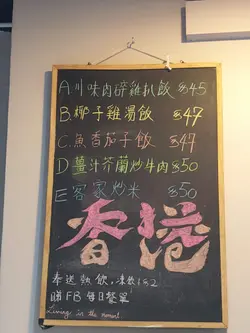 A 川味肉碎雞扒飯 $45
B. 椰子雞湯飯 $47
C. 魚香茄子飯 $47
D 薑汁芥蘭炒牛肉 $50
E 客家炒米 $50
香港
奉送熱飲,凍飲加2
睇FB每日餐單
Living in the moment